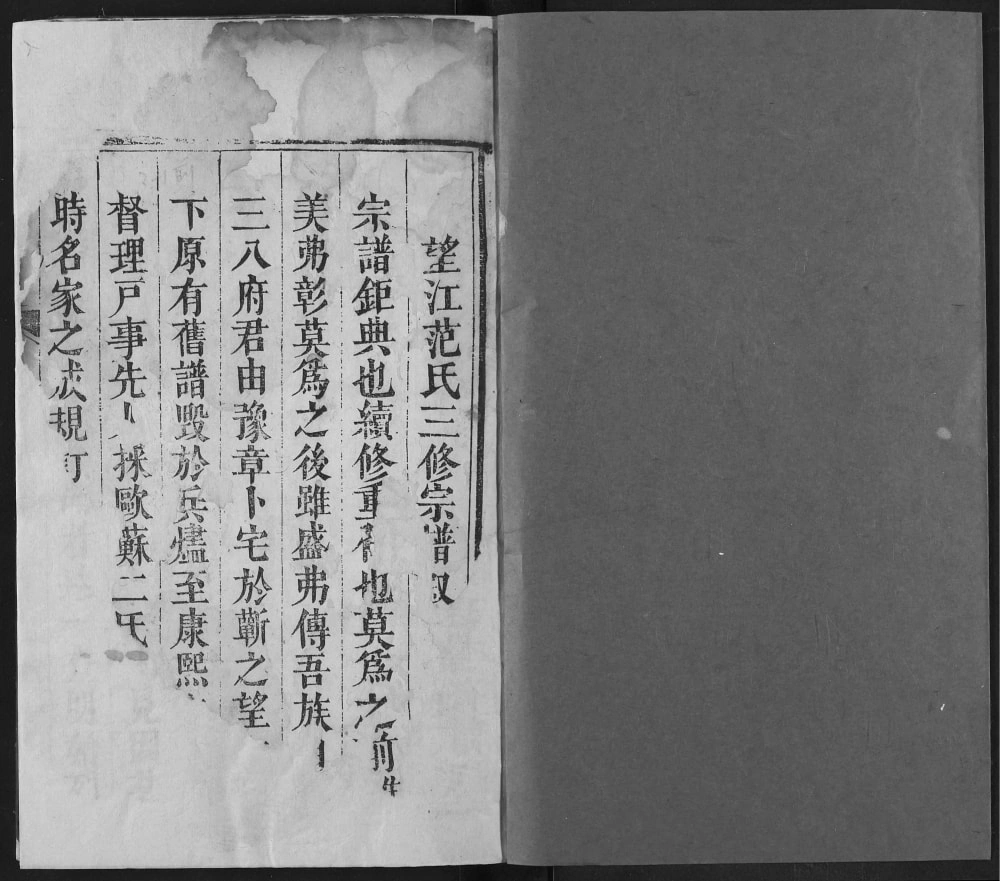 望江范氏三修宗譜叙
宗譜鉅典也續修重任也莫爲之前
美弗彰莫爲之後雖盛弗傳吾族
三八府君由豫章卜宅於蘄之望
下原有舊譜毀於兵燼至康熙
督理戸事先人採歐蘇二氏
時名家之成規訂